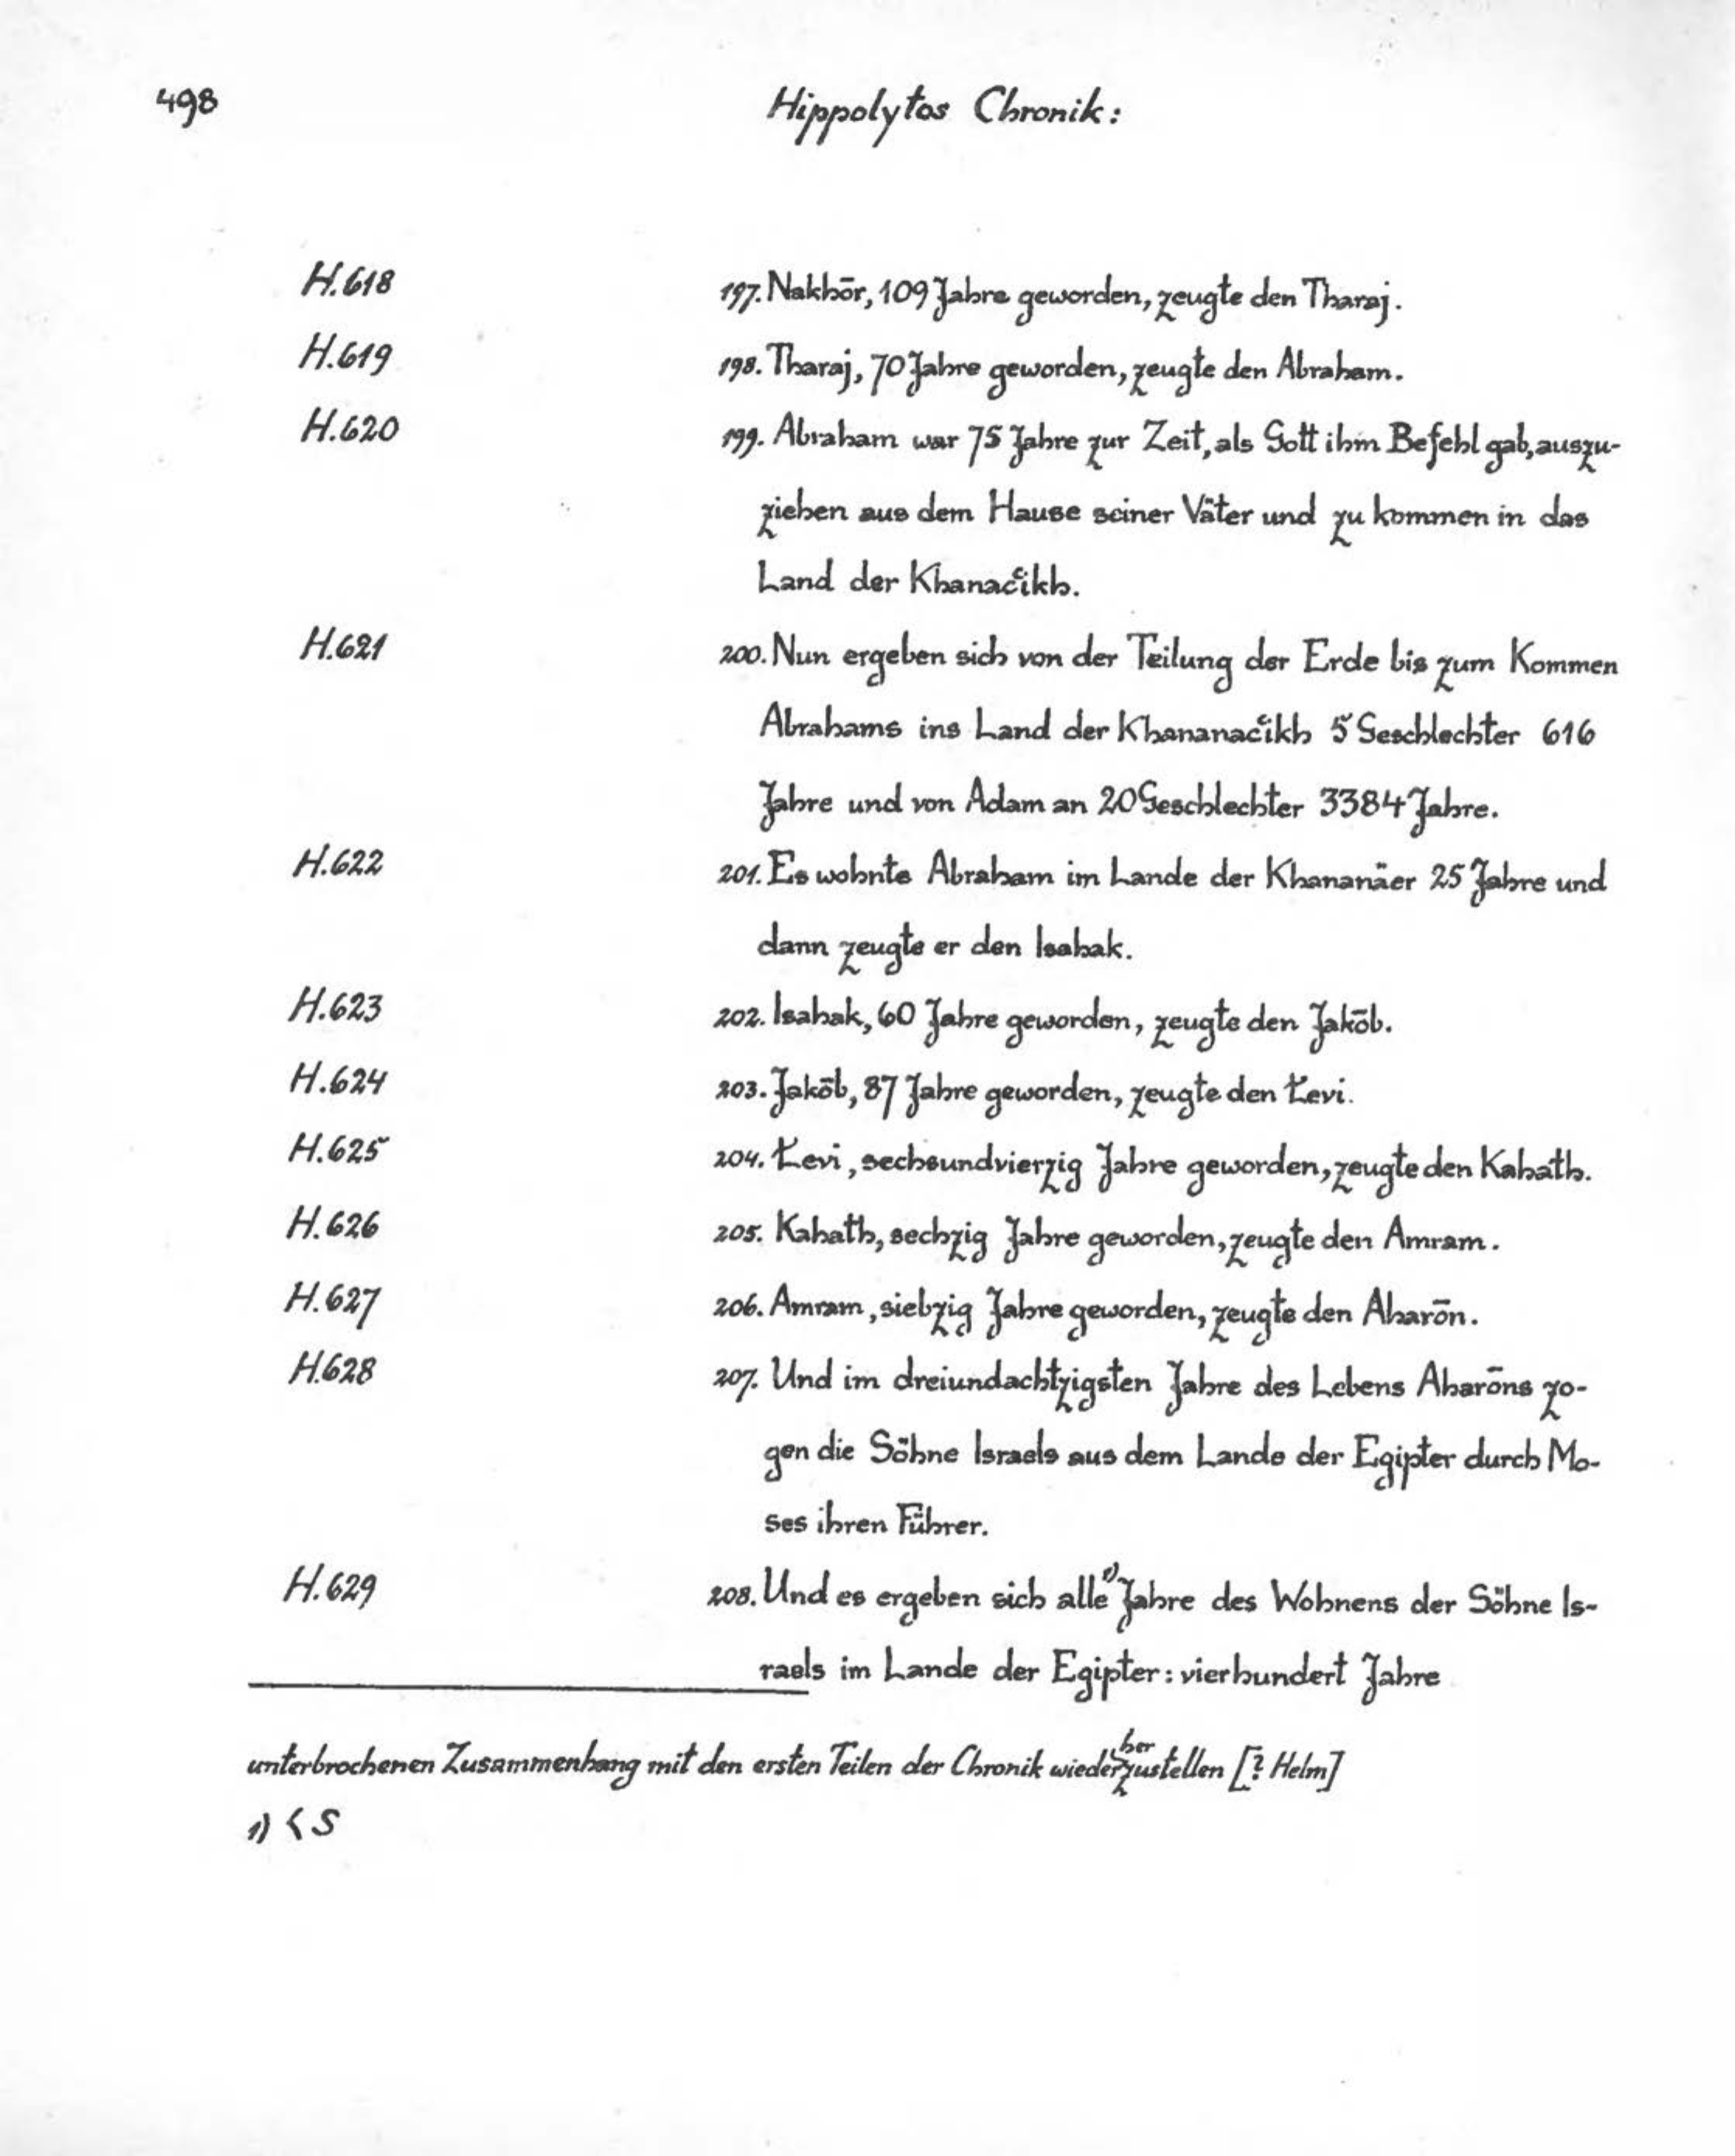 498 Hippolytos Chronik:
H.618 197. Nakhōr, 109 Jahre geworden, zeugte den Tharaj.
H.619 198. Tharaj, 70 Jahre geworden, zeugte den Abraham.
H.620 199. Abraham war 75 Jahre zur Zeit, als Gott ihm Befehl gab, auszu-
ziehen aus dem Hause seiner Väter und zu kommen in das
Land der Khanac̔ikh.
H.621 200. Nun ergeben sich von der Teilung der Erde bis zum Kommen
Abrahams ins Land der Khananac̔ikh 5 Geschlechter 616
Jahre und von Adam an 20 Geschlechter 3384 Jahre.
H.622 201. Es wohnte Abraham im Lande der Khananäer 25 Jahre und
dann zeugte er den Isahak.
H.623 202. Isahak, 60 Jahre geworden, zeugte den Jakōb.
H.624 203. Jakōb, 87 Jahre geworden, zeugte den Łevi.
H.625 204. Łevi, sechsundvierzig Jahre geworden, zeugte den Kahath.
H.626 205. Kahath, sechzig Jahre geworden, zeugte den Amram.
H.627 206. Amram, siebzig Jahre geworden, zeugte den Aharōn.
H.628 207. Und im dreiundachtzigsten Jahre des Lebens Aharōns zo-
gen die Söhne Israels aus dem Lande der Egipter durch Mo-
ses ihren Führer.
H.629 208. Und es ergeben sich alle¹⁾ Jahre des Wohnens der Söhne Is-
raels im Lande der Egipter: vierhundert Jahre
unterbrochenen Zusammenhang mit den ersten Teilen der Chronik wiederherzustellen [? Helm]
1) < S